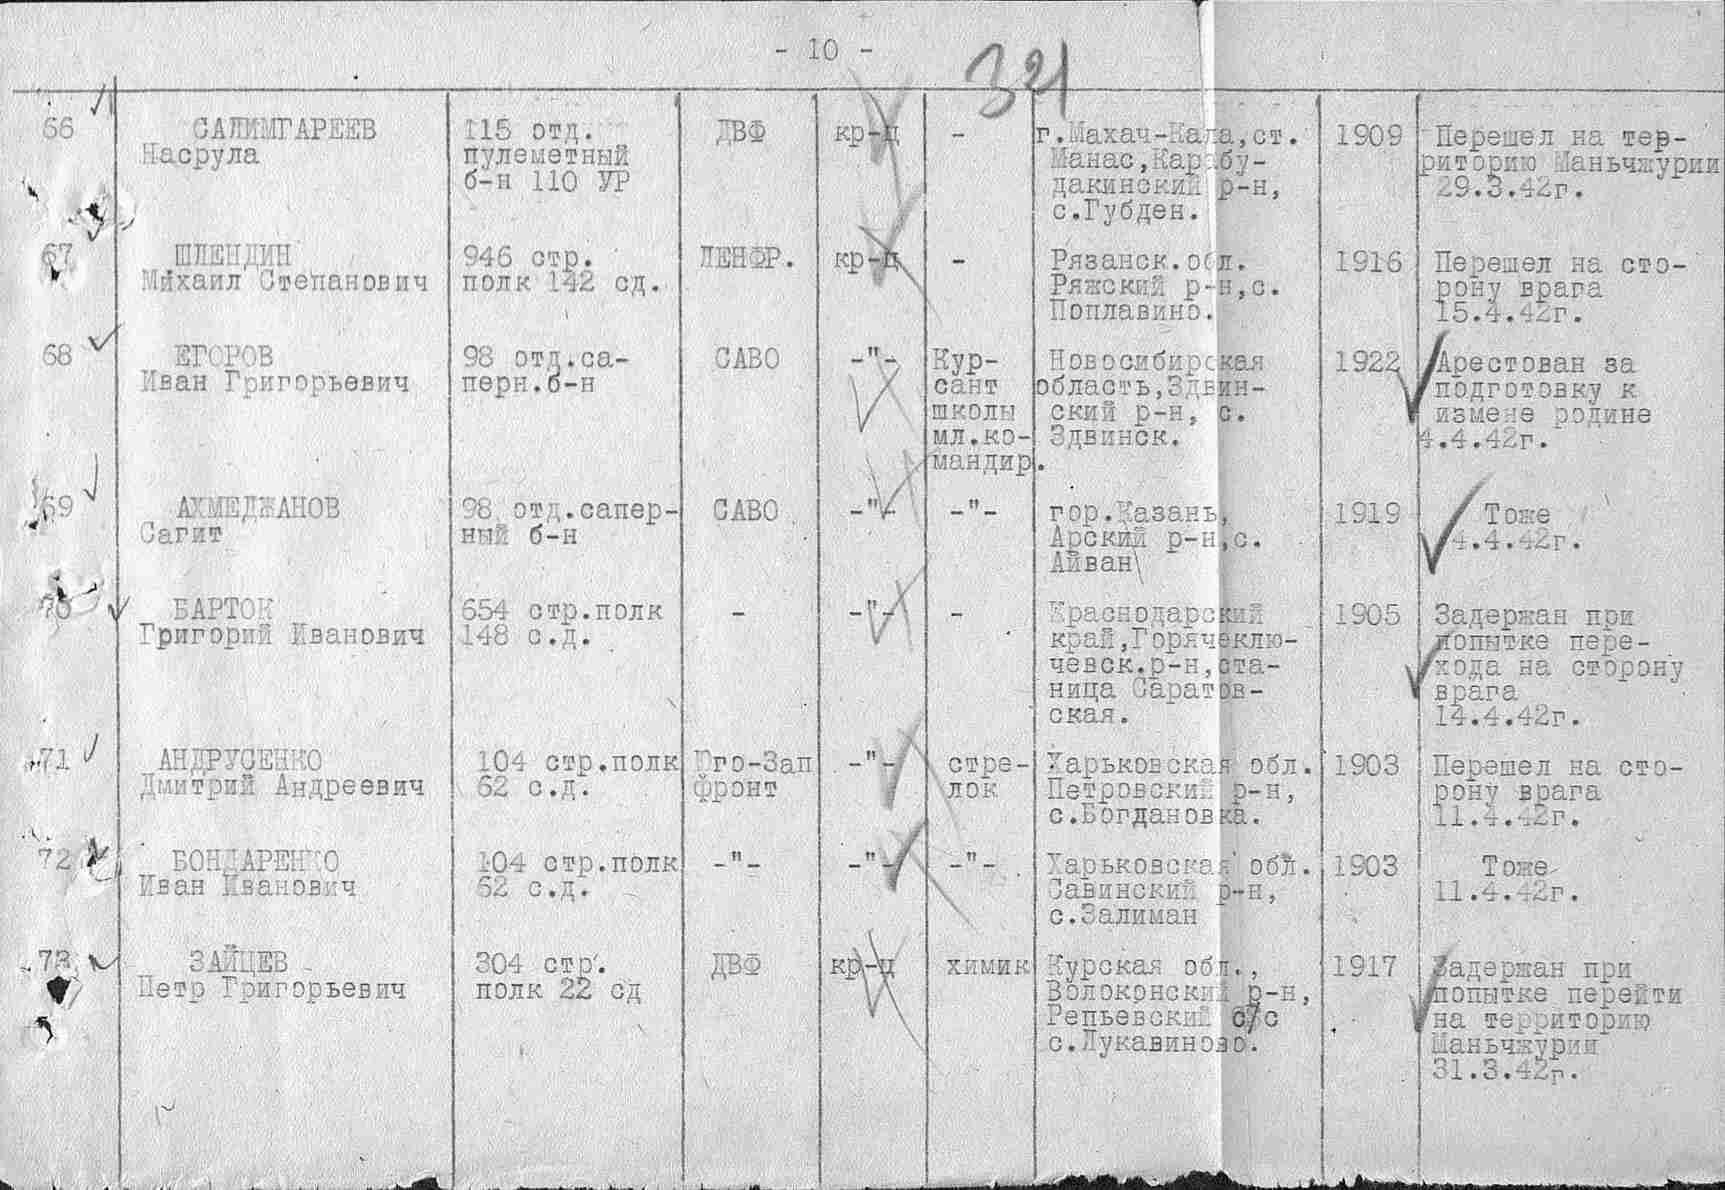 - 10 -
321
66
САЛИМГАРЕЕВ
Насрула
115 отд.
пулеметный
б-н 110 УР
ДВФ
кр-ц
-
г.Махач-Кала,ст.
Манас,Карабу-
дакинский р-н,
с.Губден.
1909
Перешел на тер-
риторию Маньчжурии
29.3.42г.
67
ШЛЕНДИН
Михаил Степанович
946 стр.
полк 142 сд.
ЛЕНФР.
кр-ц
-
Рязанск.обл.
Ряжский р-н,с.
Поплавино.
1916
Перешел на сто-
рону врага
15.4.42г.
68
ЕГОРОВ
Иван Григорьевич
98 отд.са-
перн.б-н
САВО
-"-
Кур-
сант
школы
мл.ко-
мандир.
Новосибирская
область,Здвин-
ский р-н, с.
Здвинск.
1922
Арестован за
подготовку к
измене родине
4.4.42г.
69
АХМЕДЖАНОВ
Сагит
98 отд.сапер-
ный б-н
САВО
-"-
-"-
гор.Казань,
Арский р-н,с.
Айван
1919
Тоже
4.4.42г.
70
БАРТОК
Григорий Иванович
654 стр.полк
148 с.д.
-
-"-
-
Краснодарский
край,Горячеклю-
чевск.р-н,ста-
ница Саратов-
ская.
1905
Задержан при
попытке пере-
хода на сторону
врага
14.4.42г.
71
АНДРУСЕНКО
Дмитрий Андреевич
104 стр.полк
62 с.д.
Юго-Зап
фронт
-"-
стре-
лок
Харьковская обл.
Петровский р-н,
с.Богдановка.
1903
Перешел на сто-
рону врага
11.4.42г.
72
БОНДАРЕНКО
Иван Иванович
104 стр.полк
62 с.д.
-"-
-"-
-"-
Харьковская обл.
Савинский р-н,
с.Залиман
1903
Тоже
11.4.42г.
73
ЗАЙЦЕВ
Петр Григорьевич
304 стр.
полк 22 сд
ДВФ
кр-ц
химик
Курская обл.,
Волоконский р-н,
Репьевский с/с
с.Лукавиново.
1917
Задержан при
попытке перейти
на территорию
Маньчжурии
31.3.42г.